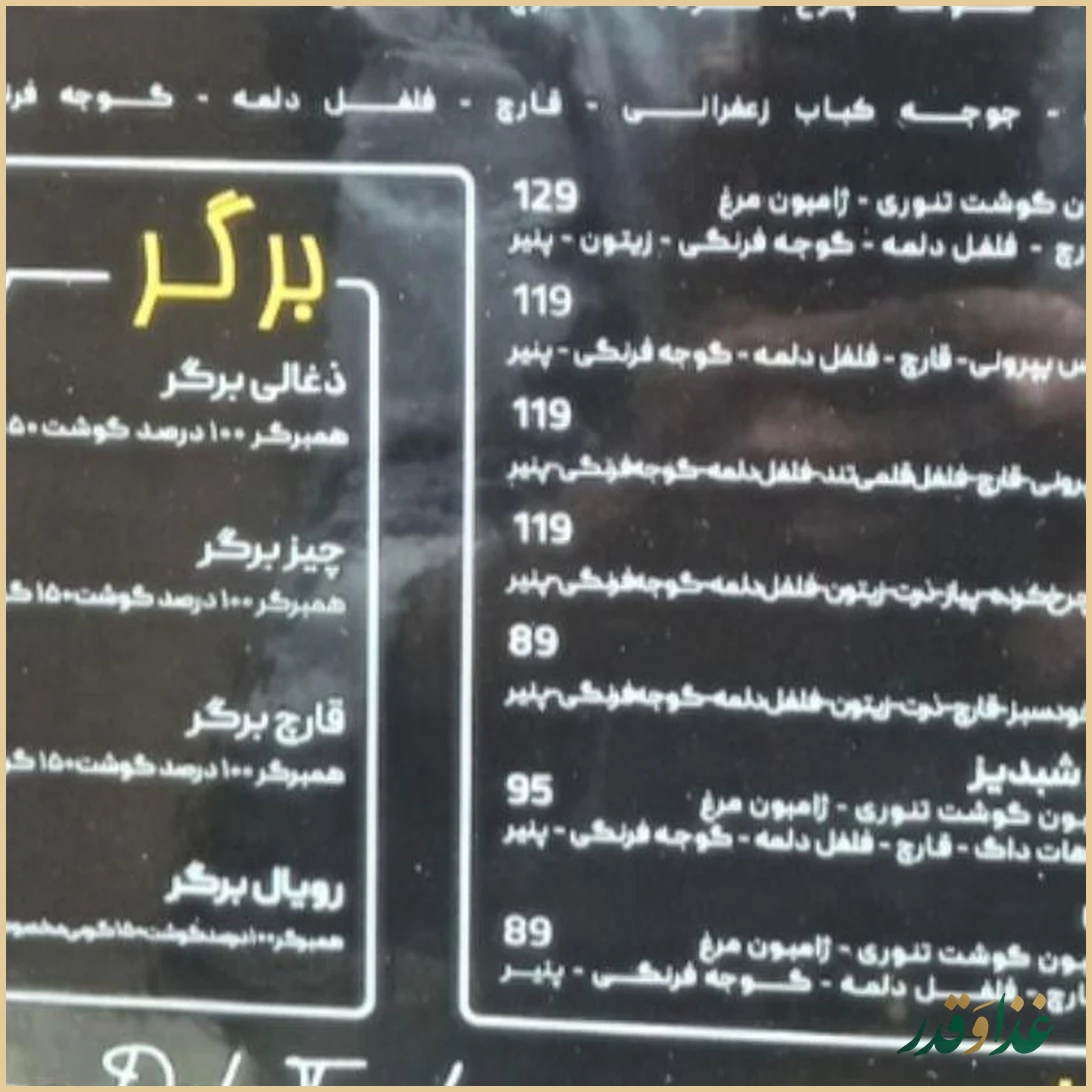 - جوجه کباب زعفرانی - قارچ - فلفل دلمه - گوجه
گوشت تنوری - ژامبون مرغ 129
- فلفل دلمه - گوجه فرنگی - زیتون - پنیر
119
پپرونی - قارچ - فلفل دلمه - گوجه فرنگی - پنیر
119
قارچ-فلفل قلمی تند-فلفل دلمه-گوجه فرنگی-پنیر
119
پیاز-ذرت-زیتون-فلفل دلمه-گوجه فرنگی-پنیر
89
قارچ-ذرت-زیتون-فلفل دلمه-گوجه فرنگی-پنیر
شبدیز
گوشت تنوری - ژامبون مرغ 95
هات داگ - قارچ - فلفل دلمه - گوجه فرنگی - پنیر
گوشت تنوری - ژامبون مرغ 89
- فلفل دلمه - گوجه فرنگی - پنیر
برگر
ذغالی برگر
همبرگر ۱۰۰ درصد گوشت
چیز برگر
همبرگر ۱۰۰ درصد گوشت ۱۵۰
قارچ برگر
همبرگر ۱۰۰ درصد گوشت ۱۵۰
رویال برگر
همبرگر ۱۰۰ درصد گوشت ۱۵۰ گرمی
غذا و قدر